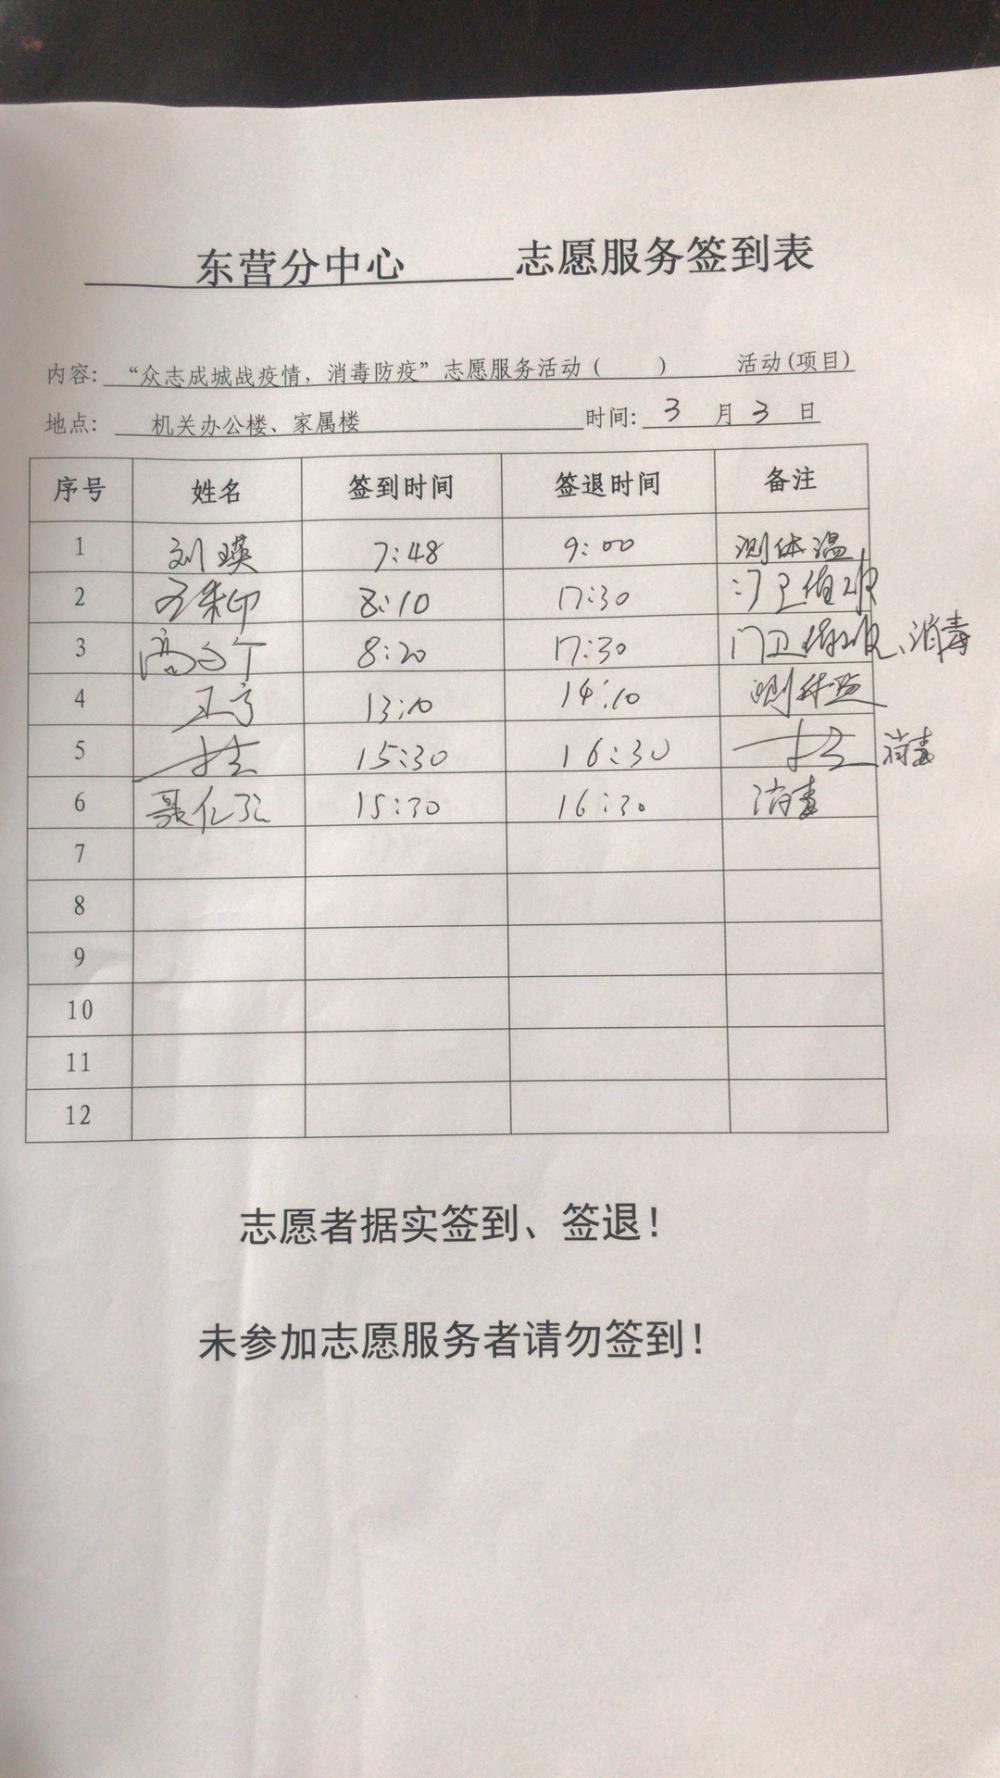 东营分中心 志愿服务签到表
内容: “众志成城战疫情，消毒防疫”志愿服务活动（ ） 活动(项目)
地点: 机关办公楼、家属楼 时间: 3 月 3 日
序号 姓名 签到时间 签退时间 备注
1 刘瑛 7:48 9:00 测体温
2 8:10 17:30 门卫值班
3 8:20 17:30 门卫值班、消毒
4 13:10 14:10 测体温
5 15:30 16:30 消毒
6 15:30 16:30 消毒
7
8
9
10
11
12
志愿者据实签到、签退！
未参加志愿服务者请勿签到！